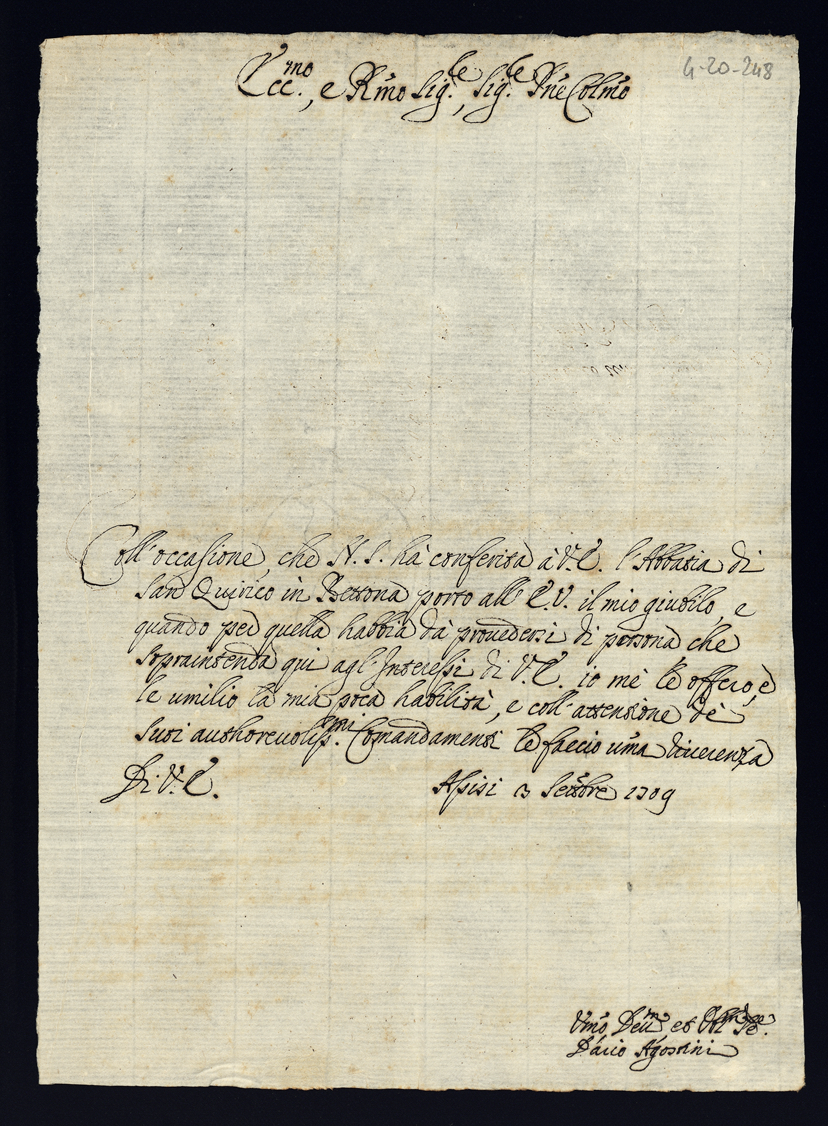 4-20-248
Ecc.mo, e Rmo Sig.re, Sig.re Pne Colmo
Coll'occasione, che N. S. hà conferita à V. E. l'Abbatia di
San Quirico in Bettona porto all' E. V. il mio giubilo, e
quando per quella habbia dà provedersi di persona che
sopraintenda qui agl'Interessi di V. E. io mè le offero, è
le umilio la mia poca habilità, e coll'attenzione dè
suoi authorevoliss.mi Comandamenti le faccio uma riverenza
Di V. E. Assisi 3 Settbre 1709
Umo Devmo et Obl
Dario Agostini